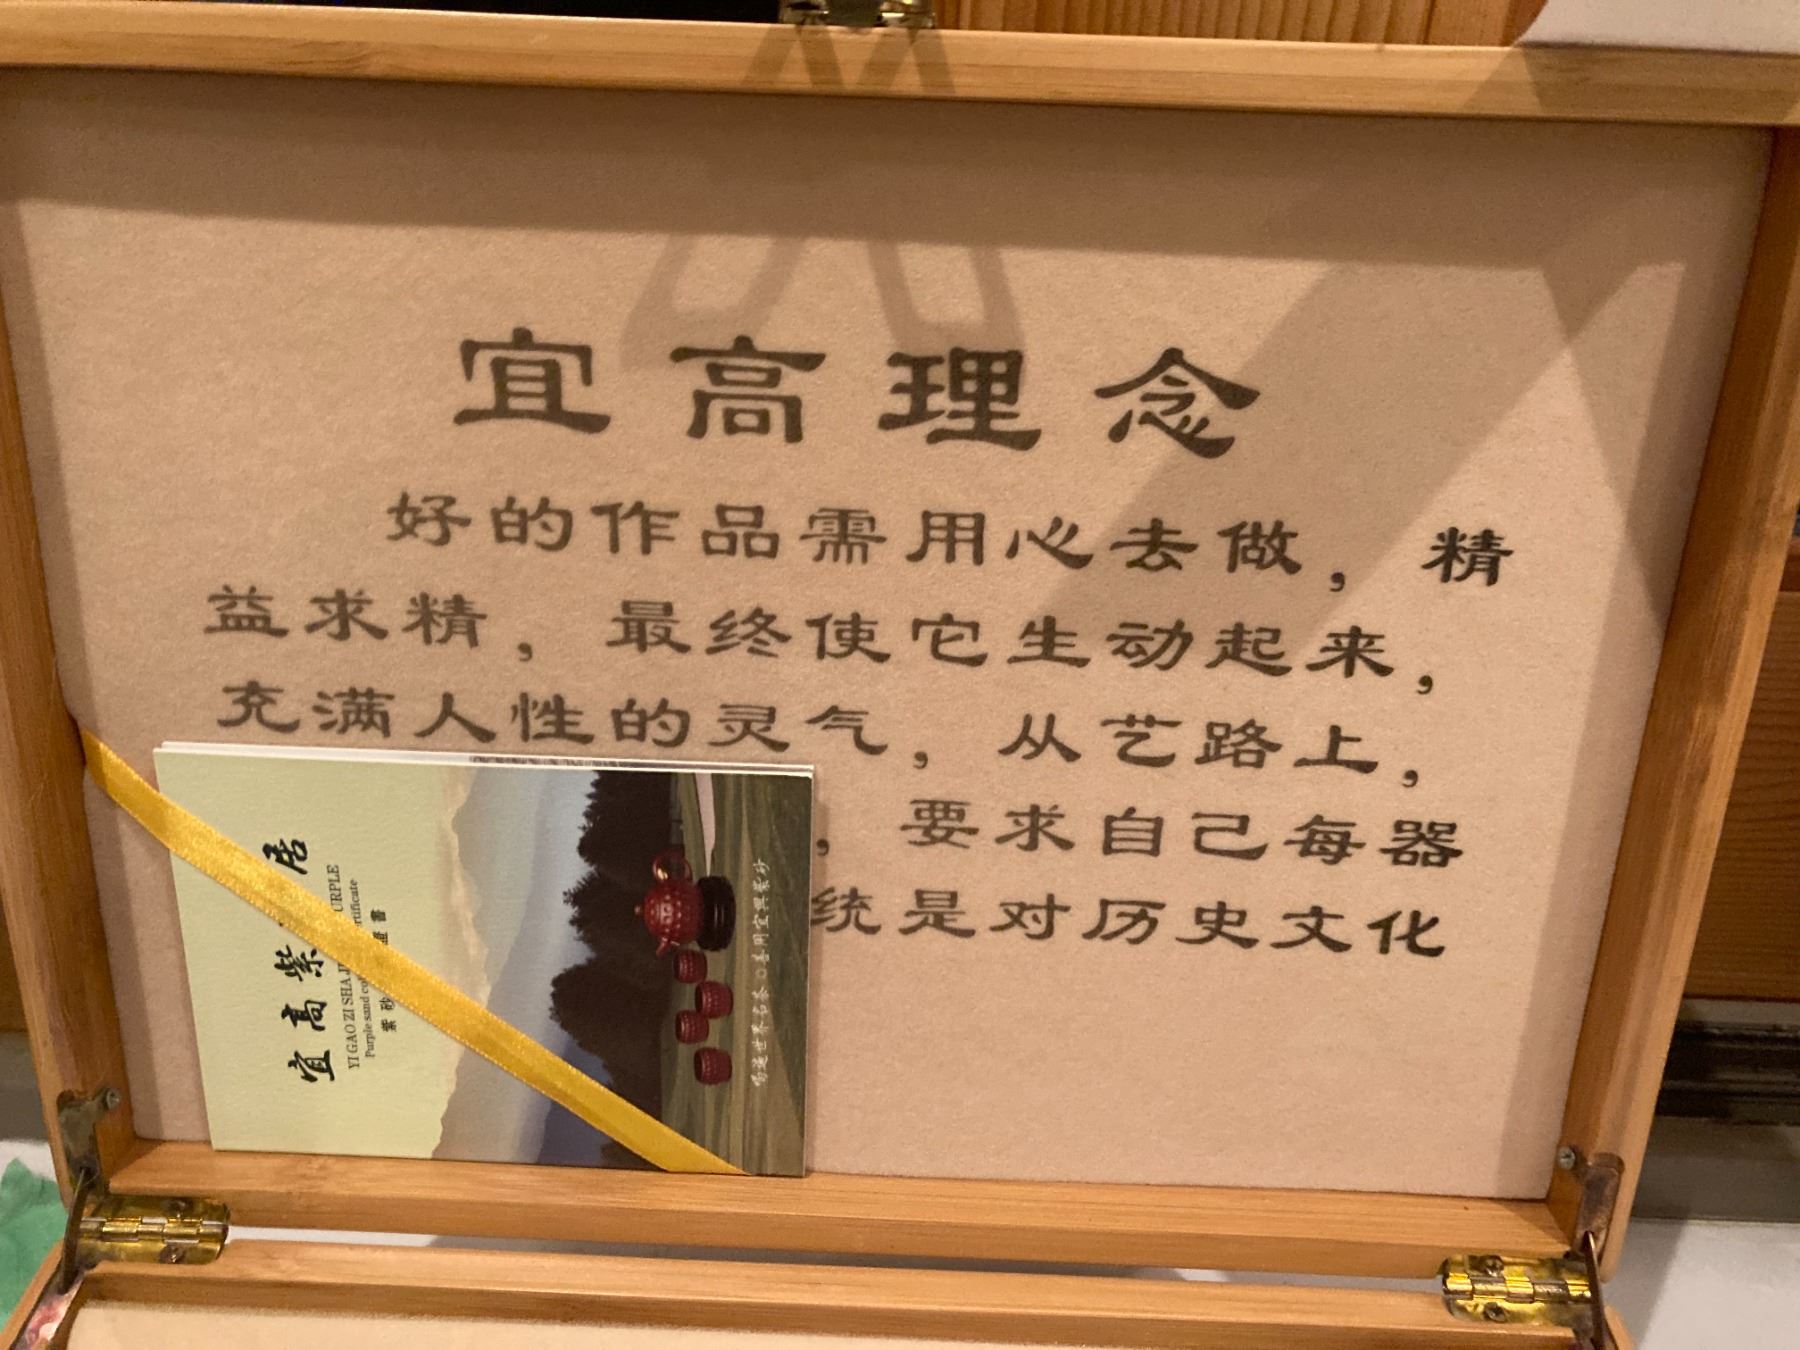 宜高理念
好的作品需用心去做，精
益求精，最终使它生动起来，
充满人性的灵气，从艺路上，
，要求自己每器
统是对历史文化
宜高紫居
YI GAO ZI SHA J URPLE
Purple sand co ertificate
紫砂 證書
喝遍世界名茶 善用宜興紫砂